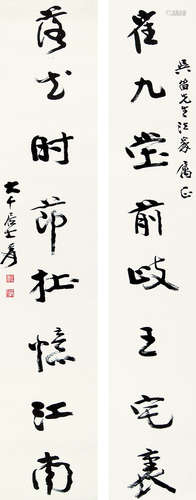 吳苗先生法家屬正
崔九堂前岐王宅裏
落花時節杜憶江南
大千居士爰